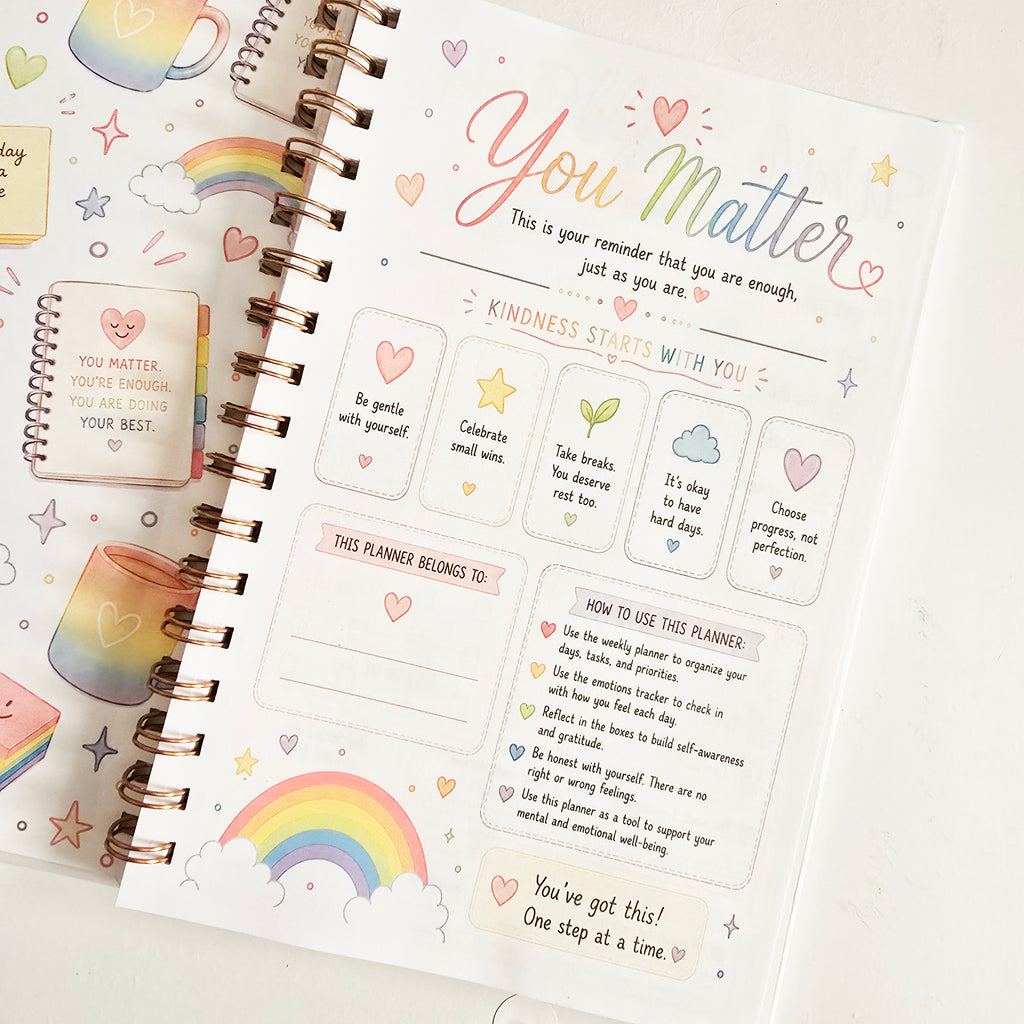 YOU MATTER.
YOU'RE ENOUGH.
YOU ARE DOING
YOUR BEST.
You Matter
This is your reminder that you are enough,
just as you are.
KINDNESS STARTS WITH YOU
Be gentle
with yourself.
Celebrate
small wins.
Take breaks.
You deserve
rest too.
It's okay
to have
hard days.
Choose
progress, not
perfection.
THIS PLANNER BELONGS TO:
HOW TO USE THIS PLANNER:
Use the weekly planner to organize your
days, tasks, and priorities.
Use the emotions tracker to check in
with how you feel each day.
Reflect in the boxes to build self-awareness
and gratitude.
Be honest with yourself. There are no
right or wrong feelings.
Use this planner as a tool to support your
mental and emotional well-being.
You've got this!
One step at a time.